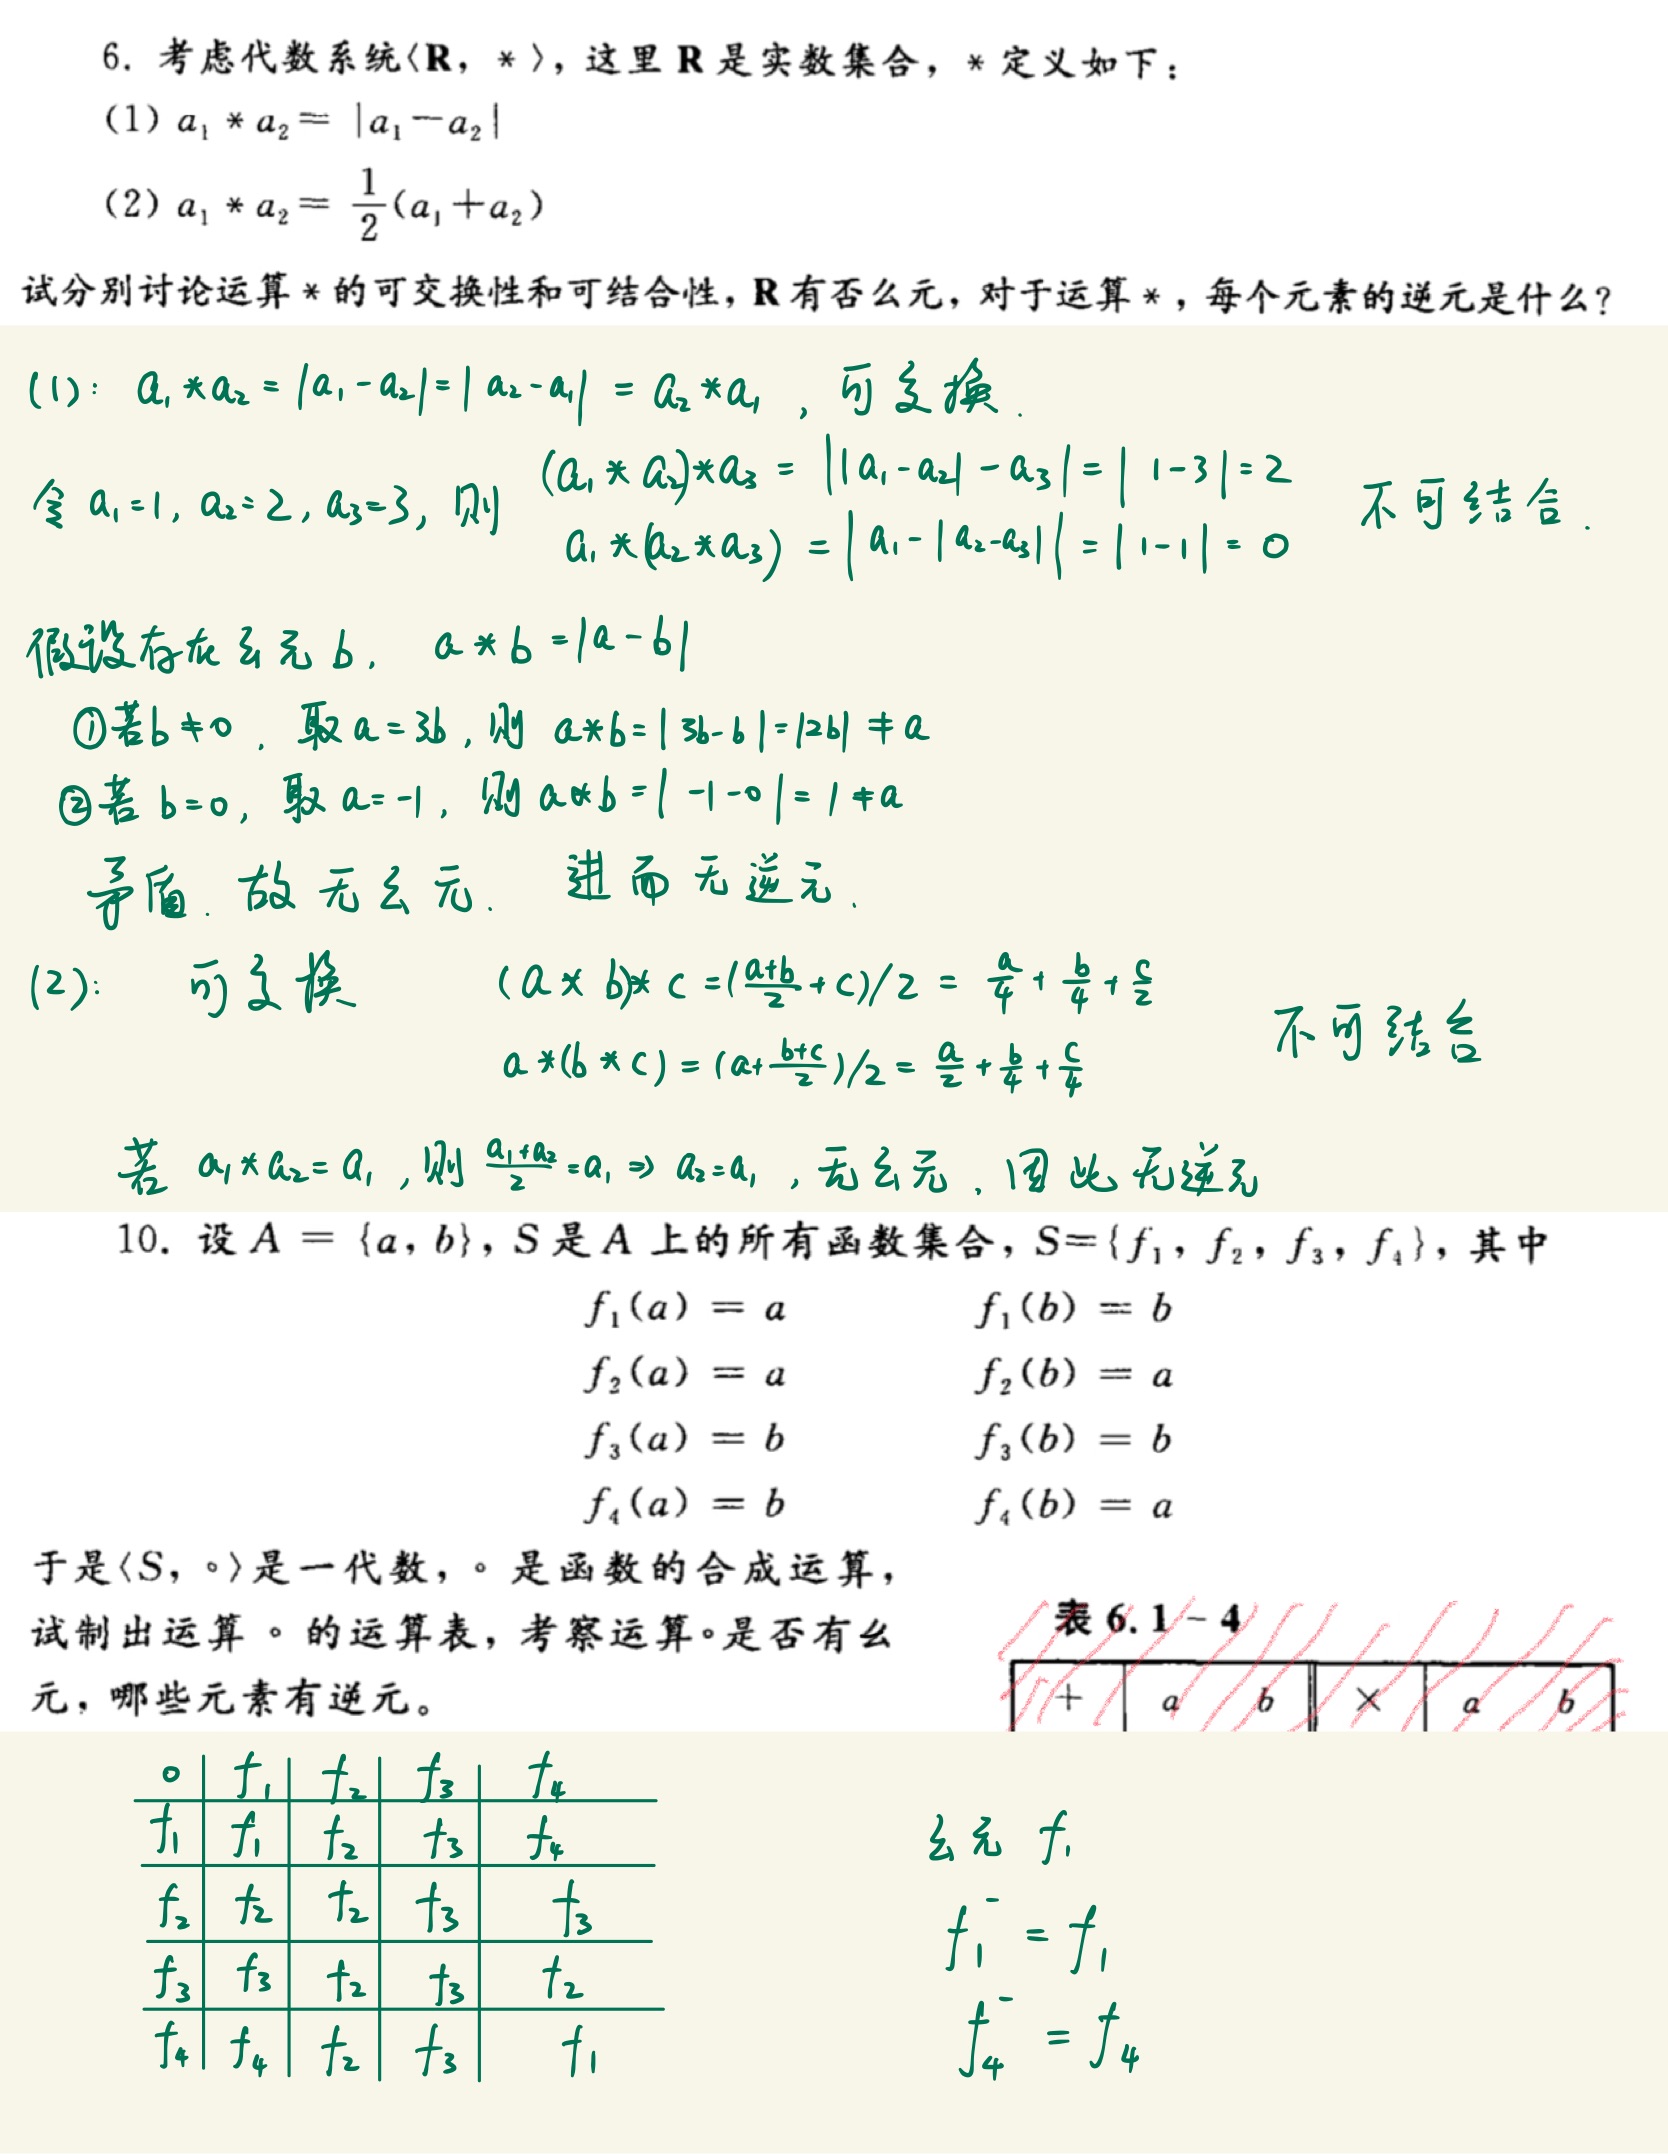 6. 考虑代数系统〈R, *〉, 这里 R 是实数集合, * 定义如下:
(1) a₁ * a₂ = |a₁-a₂|
(2) a₁ * a₂ = 1/2(a₁+a₂)
试分别讨论运算 * 的可交换性和可结合性, R 有否么元, 对于运算 *, 每个元素的逆元是什么?
(1): a₁*a₂ = |a₁-a₂| = |a₂-a₁| = a₂*a₁, 可交换.
令 a₁=1, a₂=2, a₃=3, 则 (a₁*a₂)*a₃ = ||a₁-a₂|-a₃| = |1-3| = 2
a₁*(a₂*a₃) = |a₁-|a₂-a₃|| = |1-1| = 0 不可结合.
假设存在幺元 b, a*b = |a-b|
①若 b≠0, 取 a=3b, 则 a*b = |3b-b| = |2b| ≠ a
②若 b=0, 取 a=-1, 则 a*b = |-1-0| = 1 ≠ a
矛盾. 故无幺元. 进而无逆元.
(2): 可交换 (a*b)*c = (a+b/2+c)/2 = a/4+b/4+c/2
a*(b*c) = (a+b+c/2)/2 = a/2+b/4+c/4 不可结合
若 a₁*a₂=a₁, 则 a₁+a₂/2=a₁ ⇒ a₂=a₁, 无幺元. 因此无逆元
10. 设 A = {a, b}, S 是 A 上的所有函数集合, S={f₁, f₂, f₃, f₄}, 其中
f₁(a) = a f₁(b) = b
f₂(a) = a f₂(b) = a
f₃(a) = b f₃(b) = b
f₄(a) = b f₄(b) = a
于是〈S, ∘〉是一代数, ∘ 是函数的合成运算,
试制出运算 ∘ 的运算表, 考察运算∘是否有幺
元, 哪些元素有逆元。
表 6.1-4
+ a b × a b
∘ f₁ f₂ f₃ f₄
f₁ f₁ f₂ f₃ f₄
f₂ f₂ f₂ f₃ f₃
f₃ f₃ f₂ f₃ f₂
f₄ f₄ f₂ f₃ f₁
幺元 f₁
f₁⁻ = f₁
f₄⁻ = f₄